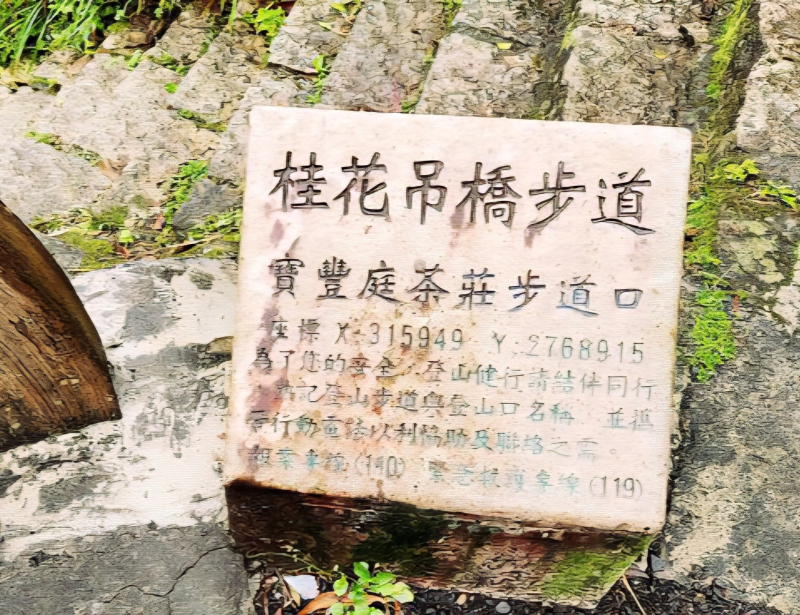 桂花吊橋步道
寶豐庭茶莊步道口
座標 X:315949 Y:2768915
為了您的安全,登山健行請結伴同行
熟記登山步道與登山口名稱 並攜
帶行動電話以利協助及聯絡之需。
報案專線(110) 緊急救護專線(119)